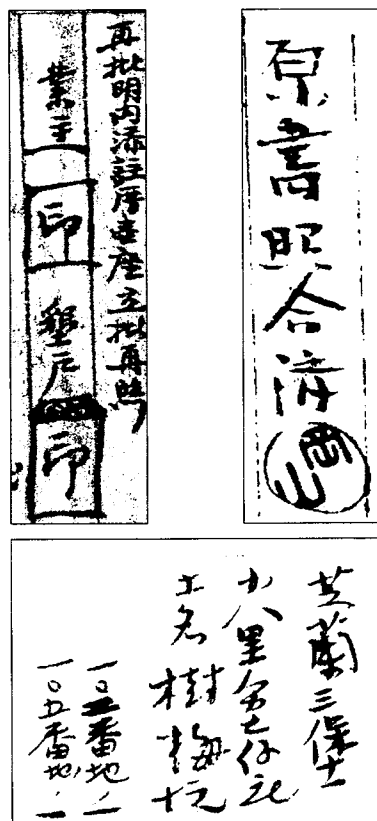 原書照合濟
岡山
再批明內添註厝壹座立批再照
業主
印
墾戶
印
芝蘭三保土
小八里坌仔庄
土名樹梅坑
一〇五番地ノ一
一〇五番地ノ一